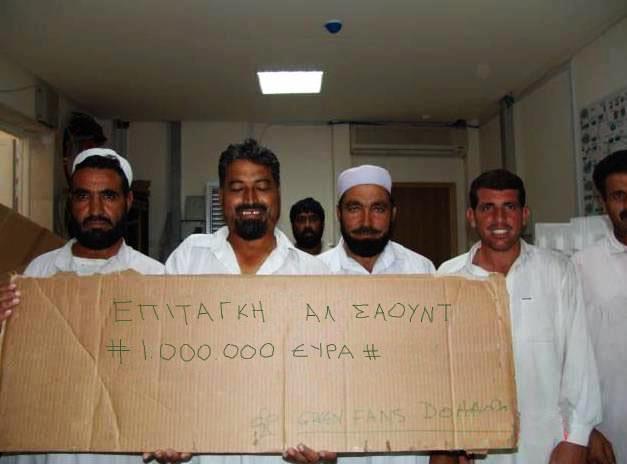 ΕΠΙΤΑΓΚΗ ΑΛ ΣΑΟΥΝΤ
# 1.000.000 ΕΥΡΑ #
GREEN FANS DOHA